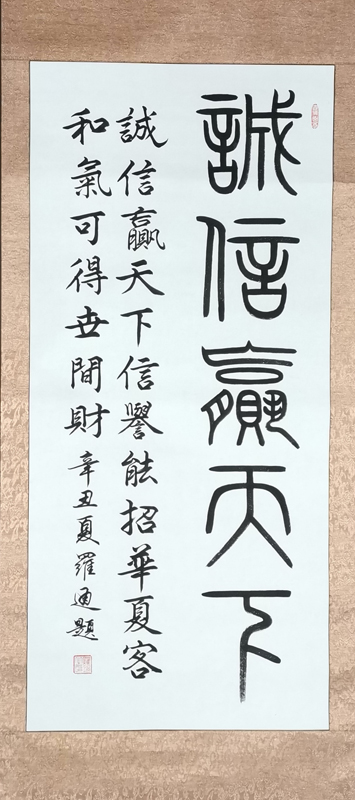 誠信贏天下
誠信贏天下信譽能招華夏客
和氣可得世間財
辛丑夏羅通題